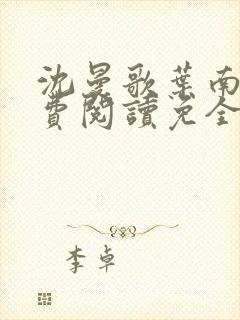 沈曼歌葉南
費閱讀免全
李卓